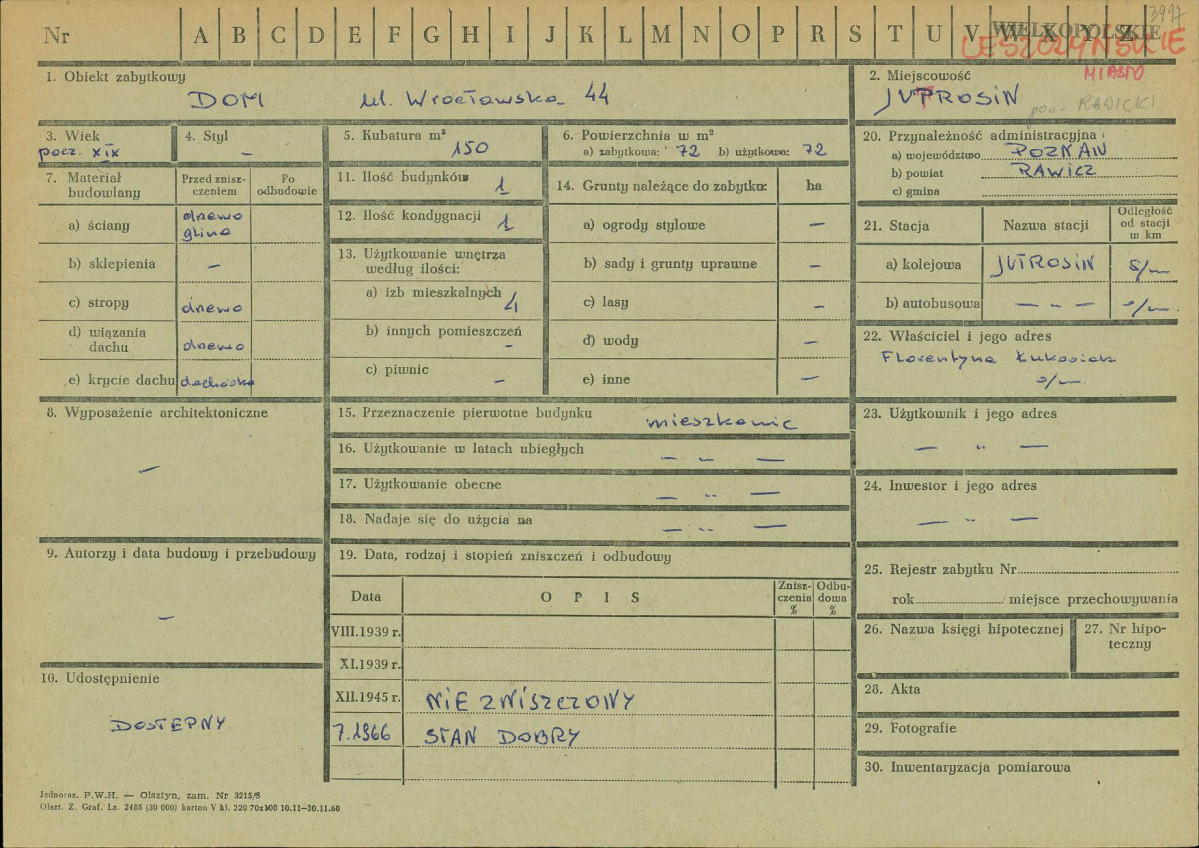 Nr A B C D E F G H I J K L M N O P R S T U V W X Y Z
3997
WIELKOPOLSKIE
LESZCZYŃSKIE
MIASTO
1. Obiekt zabytkowy
DOM ul. Wrocławska 44
2. Miejscowość
JUTROSIN
pow. RAWICKI
3. Wiek
pocz. XIX
4. Styl
—
5. Kubatura m³
150
6. Powierzchnia w m²
a) zabytkowa: 72 b) użytkowa: 72
20. Przynależność administracyjna
a) województwo POZNAŃ
b) powiat RAWICZ
c) gmina
7. Materiał budowlany
Przed zniszczeniem
Po odbudowie
a) ściany drewno glina
b) sklepienia —
c) stropy drewno
d) wiązania dachu drewno
e) krycie dachu dachówka
11. Ilość budynków 1
12. Ilość kondygnacji 1
13. Użytkowanie wnętrza według ilości:
a) izb mieszkalnych 4
b) innych pomieszczeń –
c) piwnic –
14. Grunty należące do zabytku: ha
a) ogrody stylowe –
b) sady i grunty uprawne –
c) lasy –
d) wody –
e) inne –
21. Stacja
Nazwa stacji
Odległość od stacji w km
a) kolejowa JUTROSIN s/m
b) autobusowa — „ — s/m.
22. Właściciel i jego adres
Florentyna Łukasiak
s/m.
8. Wyposażenie architektoniczne
—
15. Przeznaczenie pierwotne budynku mieszkanie
16. Użytkowanie w latach ubiegłych — „ —
17. Użytkowanie obecne — „ —
18. Nadaje się do użycia na — „ —
23. Użytkownik i jego adres
— „ —
24. Inwestor i jego adres
— „ —
9. Autorzy i data budowy i przebudowy
—
19. Data, rodzaj i stopień zniszczeń i odbudowy
Data
O P I S
Zniszczenia %
Odbudowa %
VIII.1939 r.
XI.1939 r.
XII.1945 r. NIE ZNISZCZONY
7.1966 STAN DOBRY
25. Rejestr zabytku Nr
rok miejsce przechowywania
26. Nazwa księgi hipotecznej
27. Nr hipoteczny
10. Udostępnienie
DOSTEPNY
28. Akta
29. Fotografie
30. Inwentaryzacja pomiarowa
Jednoraz. P.W.H. — Olsztyn, zam. Nr 3215/S
Olszt. Z. Graf. Lz. 2485 (30 000) karton V kl. 220 70x100 10.11—30.11.60